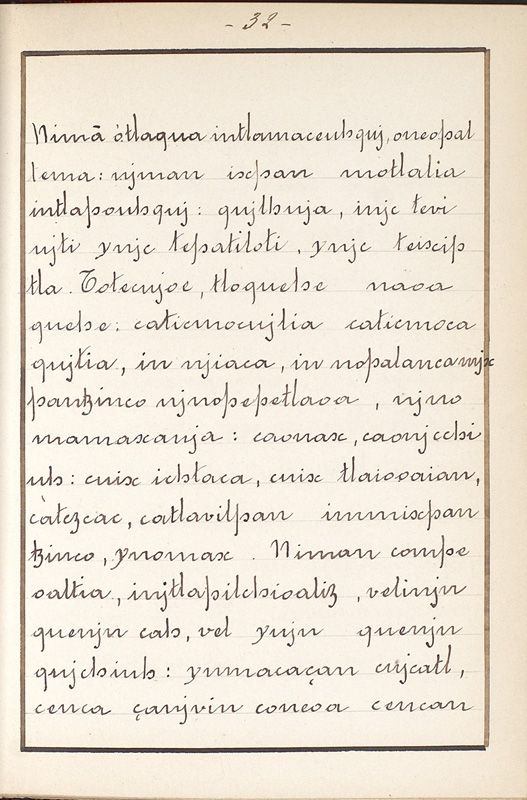 - 32 -
Nimā òtlaqua intlamaceuhquj, oncopal
tema: njman ixpan motlalia
intlapouhquj: qujlhuja, injc tevi
njti ynjc tepatiloti, ynjc teixip
tla. Totecujoe, tloquehe naoa
quehe: caticmocujlia caticmoca
qujtia, in njiaca, in nopalanca mjx
pantzinco njnopepetlaoa, njno
mamaxauja: caonax, caonjcchi
uh: cuix ichtaca, cuix tlaiooaian,
càtezcac, catlavilpan inmixpan
tzinco, ynomax. Niman compe
oaltia, injtlapilchioaliz, velinjn
quenjn cah, vel yujn quenjn
qujchiuh: yunnacaçan cujcatl,
cenca çanjvin coneoa cencan